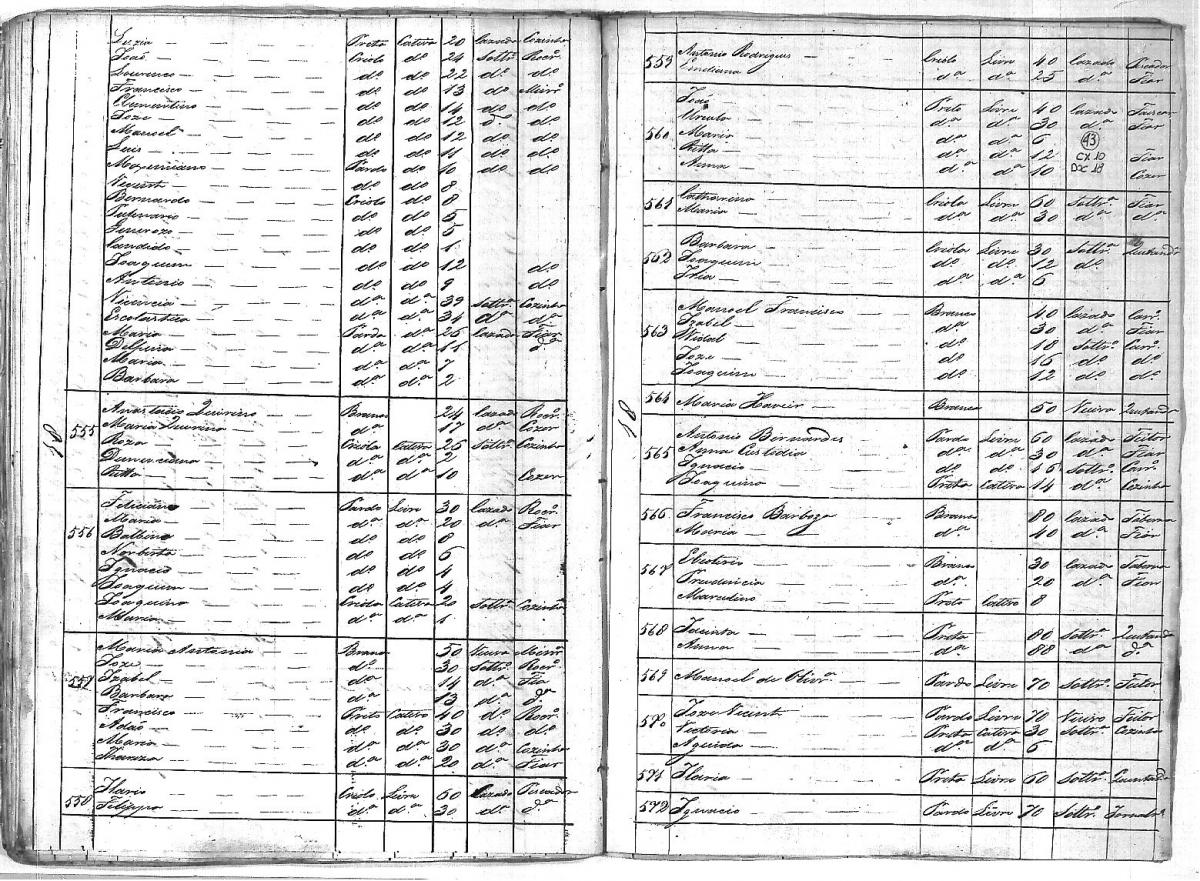 Luzia — Preta Cativa 20 Cazada Cozinha
João — Criolo do 24 Soltro Rocro
Lourenco — do do 22 do do
Francisco — do do 13 do Miner
Clementino — do do 14 do do
Joze — do do 12 do do
Manoel — do do 12 do do
Luis — do do 11 do do
Maximiano — Pardo do 10 do do
Vicente — do do 8
Bernardo — Criolo do 8
Januario — do do 5
do do 5
Candido — do do 1
Joaquim — do do 12 do
Antonio — do do 9 do
Vicencia — da da 39 Soltra Cozinha
Escolastica — da da 34 da da
Maria — Parda da 25 Cazada Fiar
Delfina — da da 11 da
Maria — da da 7
Barbara — da da 2
555 Anastacio Quirino — Branco 24 Cazado Rocro
Maria Quirina — da 17 da Cozer
Roza — Criola Cativa 25 Soltra Cozinha
Damasciana — da da 2
Ritta — da da 10 Cozer
556 Feliciano — Pardo Livre 30 Cazado Rocro
Maria — da da 20 da Fiar
Balbino — do do 8
Norberto — do do 6
Ignacio — do do 4
Joaquim — do do 4
Joaquina — Criola Cativa 20 Soltra Cozinha
Maria — da da 1
557 Maria Antonia — Branca 50 Viuva Miner
Joze — do 30 Soltro Rocro
Izabel — da 14 da Fia
Barbara — da 13 da da
Francisco — Preto Cativo 40 do Rocro
Adão — do do 30 do do
Maria — da da 30 da Cozinha
Thereza — da da 20 da Fiar
558 Ilario — Criolo Livre 60 Cazado Pescador
Filippa — da da 30 da da
559 Antonio Rodrigues — Criolo Livre 40 Cazado Pescador
Emiliana — da da 25 da Fiar
560 João — Preto Livre 40 Cazado Faiscar
da da 30 da Fiar
Maria — da da 6
Ritta — da da 12 Fiar
Anna — da da 10 Cozer
43
CX 10
DOC 18
561 Catharina — Criola Livre 60 Soltra Fiar
Maria — da da 30 da da
562 Barbara — Criola Livre 30 Soltra Quitanda
Joaquim — do do 12 do
da da 6
563 Manoel Francisco — Branco 40 Cazado Carro
Izabel — da 30 da Fiar
Vidal — do 18 Soltro Carro
Joze — do 16 do do
Joaquim — do 12 do do
564 Maria Xavier — Branca 50 Viuva Quitanda
565 Antonio Bernardes — Pardo Livre 60 Cazado Feitor
Anna Custodia — da da 30 da Fiar
Ignacio — do do 16 Soltro Carro
Joaquina — Preta Cativa 14 da Cozinha
566 Francisco Barboza — Branco 80 Cazado Taberna
Maria — da 40 da Fiar
567 Eleoterio — Branco 30 Cazado Taberna
Prudencia — da 20 da Fiar
Marcelino — Preto Cativo 8
568 Jacinta — Preta 80 Soltra Quitanda
Anna — da 88 da da
569 Manoel de Olivra — Pardo Livre 70 Soltro Feitor
570 Joze Vicente — Pardo Livre 70 Viuvo Feitor
Victoria — Preta Cativa 30 Soltra Cozinha
Aguida — da da 6
571 Ilaria — Preta Livre 60 Soltra Quitanda
572 Ignacio — Pardo Livre 70 Soltro Jornalro